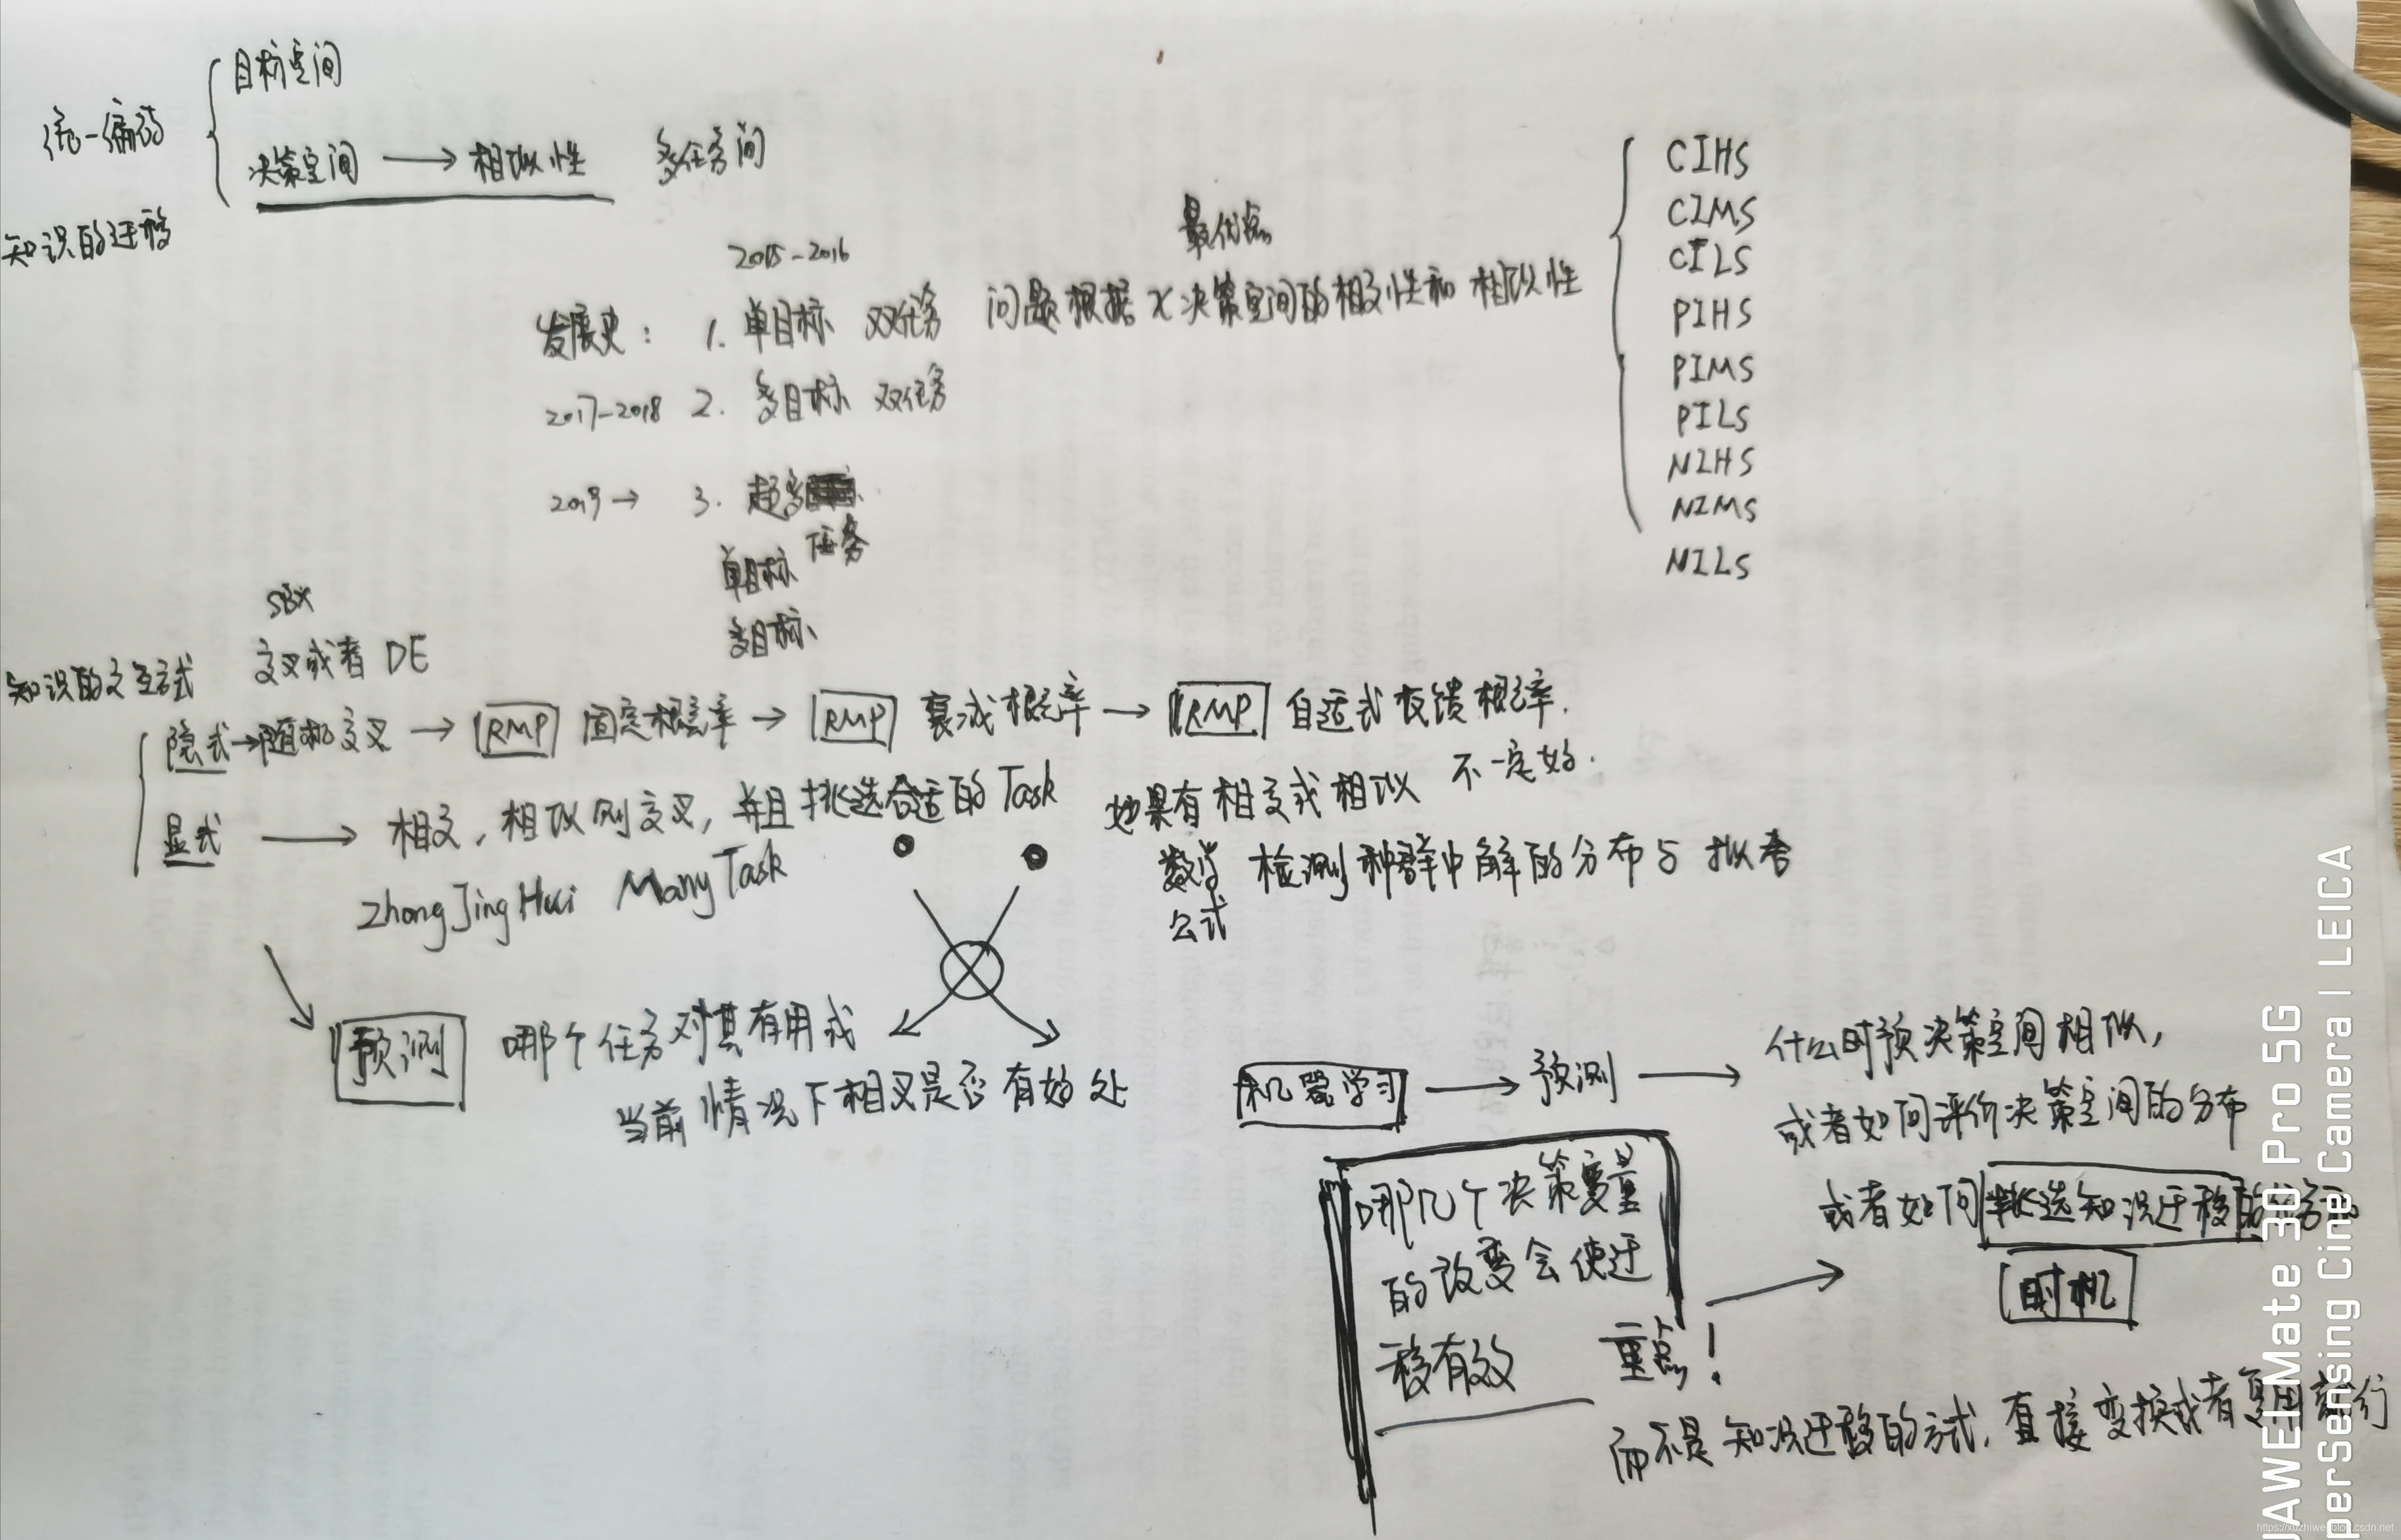 目标空间
统一编码
决策空间 → 相似性 多任务间
知识的迁移
CIHS
CIMS
CILS
PIHS
PIMS
PILS
NIHS
NIMS
NILS
2015-2016
最优点
发展史: 1. 单目标 双任务 问题根据x决策空间的相交性和相似性
2017-2018 2. 多目标 双任务
2019 → 3. 超多
任务
单目标
多目标
SBX
交叉或者 DE
知识的交互方式
隐式→随机交叉 → RMP 固定概率 → RMP 衰减概率 → RMP 自适式反馈概率.
不一定好.
显式 → 相交, 相似则交叉, 并且挑选合适的Task
如果有相交或相似
数学 检测种群中解的分布与
公式
ZhongJingHui ManyTask
预测 哪个任务对其有用或
当前情况下相叉是否有好处
机器学习 → 预测 → 什么时预决策空间相似,
或者如何评价决策空间的分布
或者如何挑选知识迁移的任务
时机
哪几个决策变量
的改变会使迁
移有效
重点!
而不是知识迁移的方式, 直接变换或者复用就行
AWEI Mate 30 Pro 5G
perSensing Cine Camera | LEICA